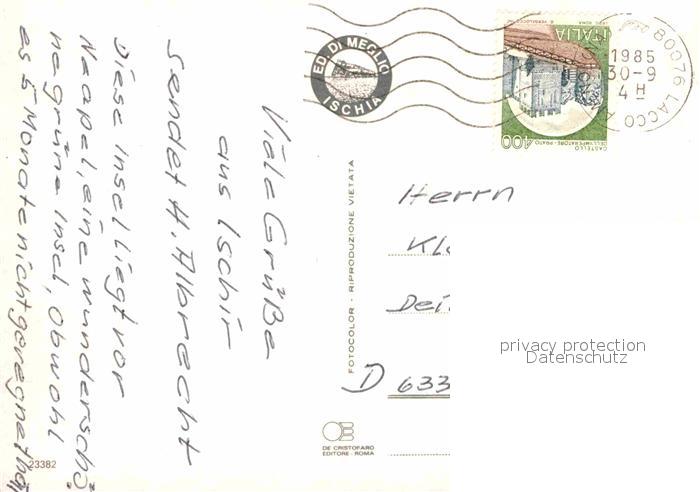 Viele Grüße
aus Ischir
sendet H. Albrecht
Diese Insel liegt vor
Neapel, eine wunderschö
ne grüne Insel, Obwohl
es 5 Monate nicht geregnet ha
23382
ED. DI MEGLIO
ISCHIA
FOTOCOLOR - RIPRODUZIONE VIETATA
DE CRISTOFARO
EDITORE - ROMA
ITALIA
400
CASTELLO
DELL'IMPERATORE - PRATO
80076 LACCO
1985
30-9
4 H
Herrn
Kl
Dei
D 633
privacy protection
Datenschutz